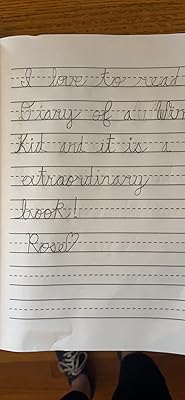 I love to read
Diary of a Wim
Kid and it is a
extraordinary
book!
Rose♡